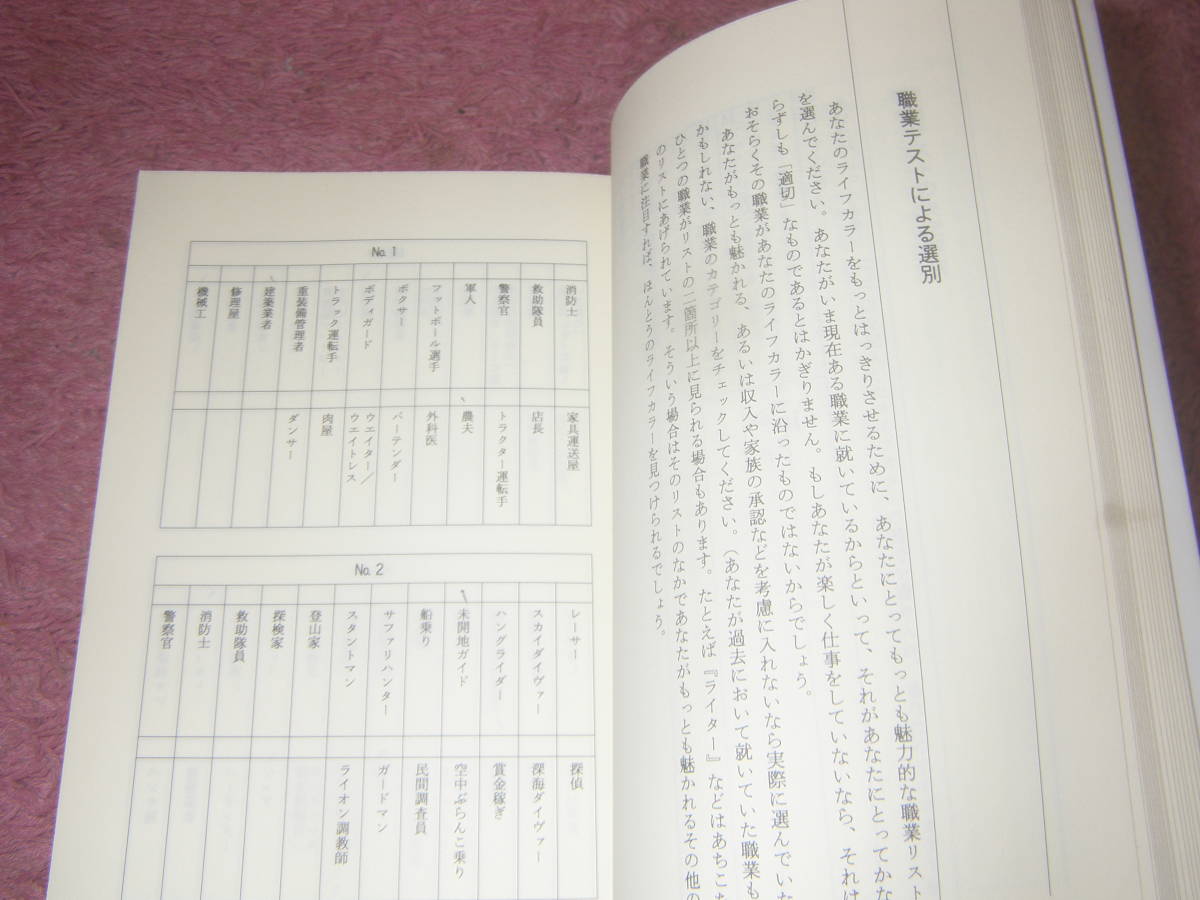 職業テストによる選別
あなたのライフカラーをもっとはっきりさせるために、あなたにとってもっとも魅力的な職業リスト
を選んでください。あなたがいま現在ある職業に就いているからといって、それがあなたにとってかな
らずしも「適切」なものであるとはかぎりません。もしあなたが楽しく仕事をしていないなら、それは
おそらくその職業があなたのライフカラーに沿ったものではないからでしょう。
あなたがもっとも魅かれる、あるいは収入や家族の承認などを考慮に入れないなら実際に選んでいた
かもしれない、職業のカテゴリーをチェックしてください。（あなたが過去において就いていた職業も
ひとつの職業がリストの二箇所以上に見られる場合もあります。たとえば『ライター』などはあちこち
のリストにあげられています。そういう場合はそのリストのなかであなたがもっとも魅かれるその他の
職業に注目すれば、ほんとうのライフカラーを見つけられるでしょう。
No.1
消防士
救助隊員
警察官
軍人
フットボール選手
ボクサー
ボディガード
トラック運転手
重装備管理者
建築業者
修理屋
機械工
家具運送屋
店長
トラクター運転手
農夫
外科医
バーテンダー
ウエイター／
ウエイトレス
肉屋
ダンサー
No.2
レーサー
スカイダイヴァー
ハングライダー
未開地ガイド
船乗り
サファリハンター
スタントマン
登山家
探検家
救助隊員
消防士
警察官
探偵
深海ダイヴァー
賞金稼ぎ
空中ぶらんこ乗り
民間調査員
ガードマン
ライオン調教師